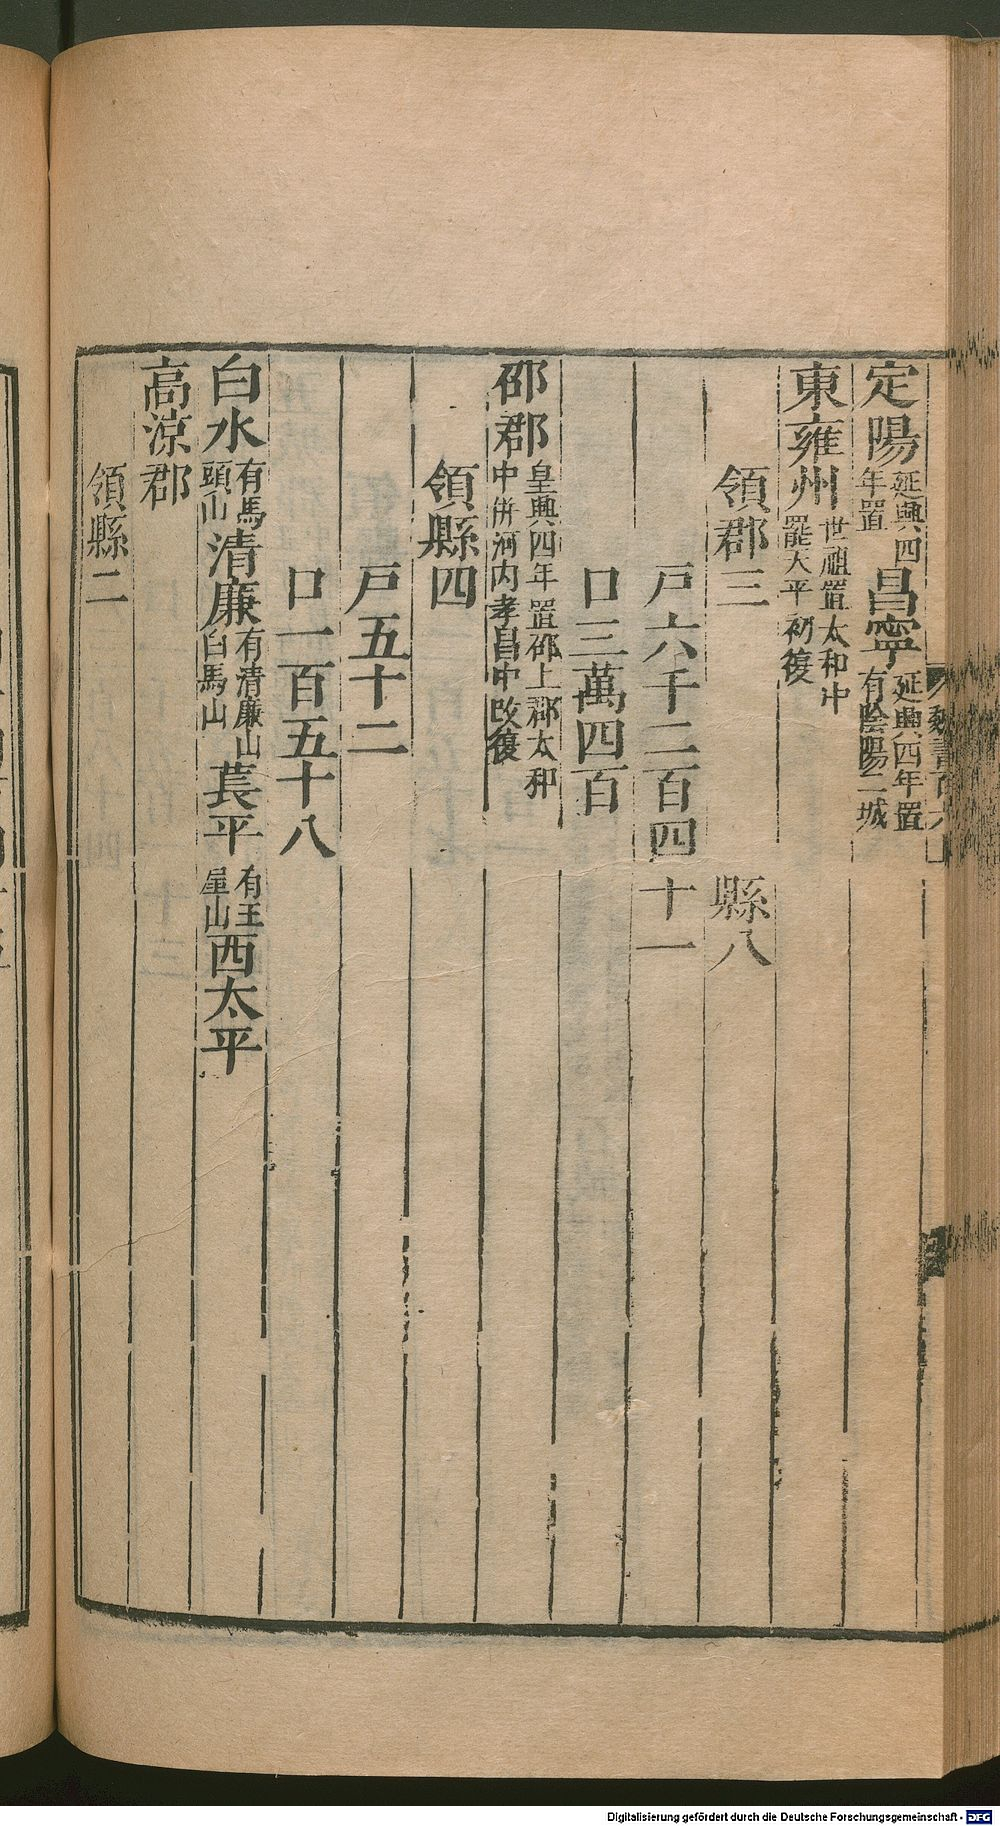 定陽延興四年置昌寧延興四年置有陰陽二城
東雍州世祖置太和中罷天平初復
領郡三 縣八
戸六千二百四十一
口三萬四百
邵郡皇興四年置邵上郡太和中併河内孝昌中改復
領縣四
戸五十二
口一百五十八
白水有馬頭山清廉有清廉山白馬山萇平有王屋山西太平
高涼郡
領縣二
Digitalisierung gefördert durch die Deutsche Forschungsgemeinschaft - DFG